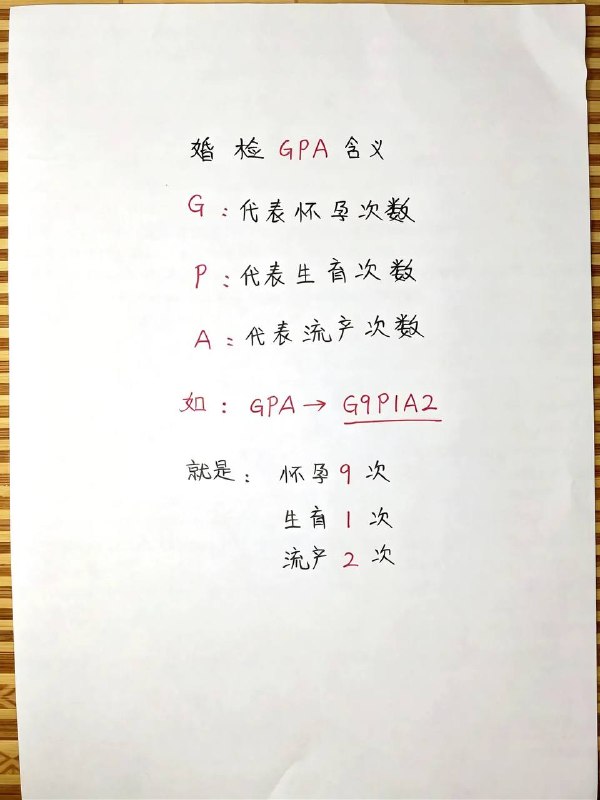 婚检GPA含义
G：代表怀孕次数
P：代表生育次数
A：代表流产次数
如：GPA→G9P1A2
就是：怀孕9次
生育1次
流产2次